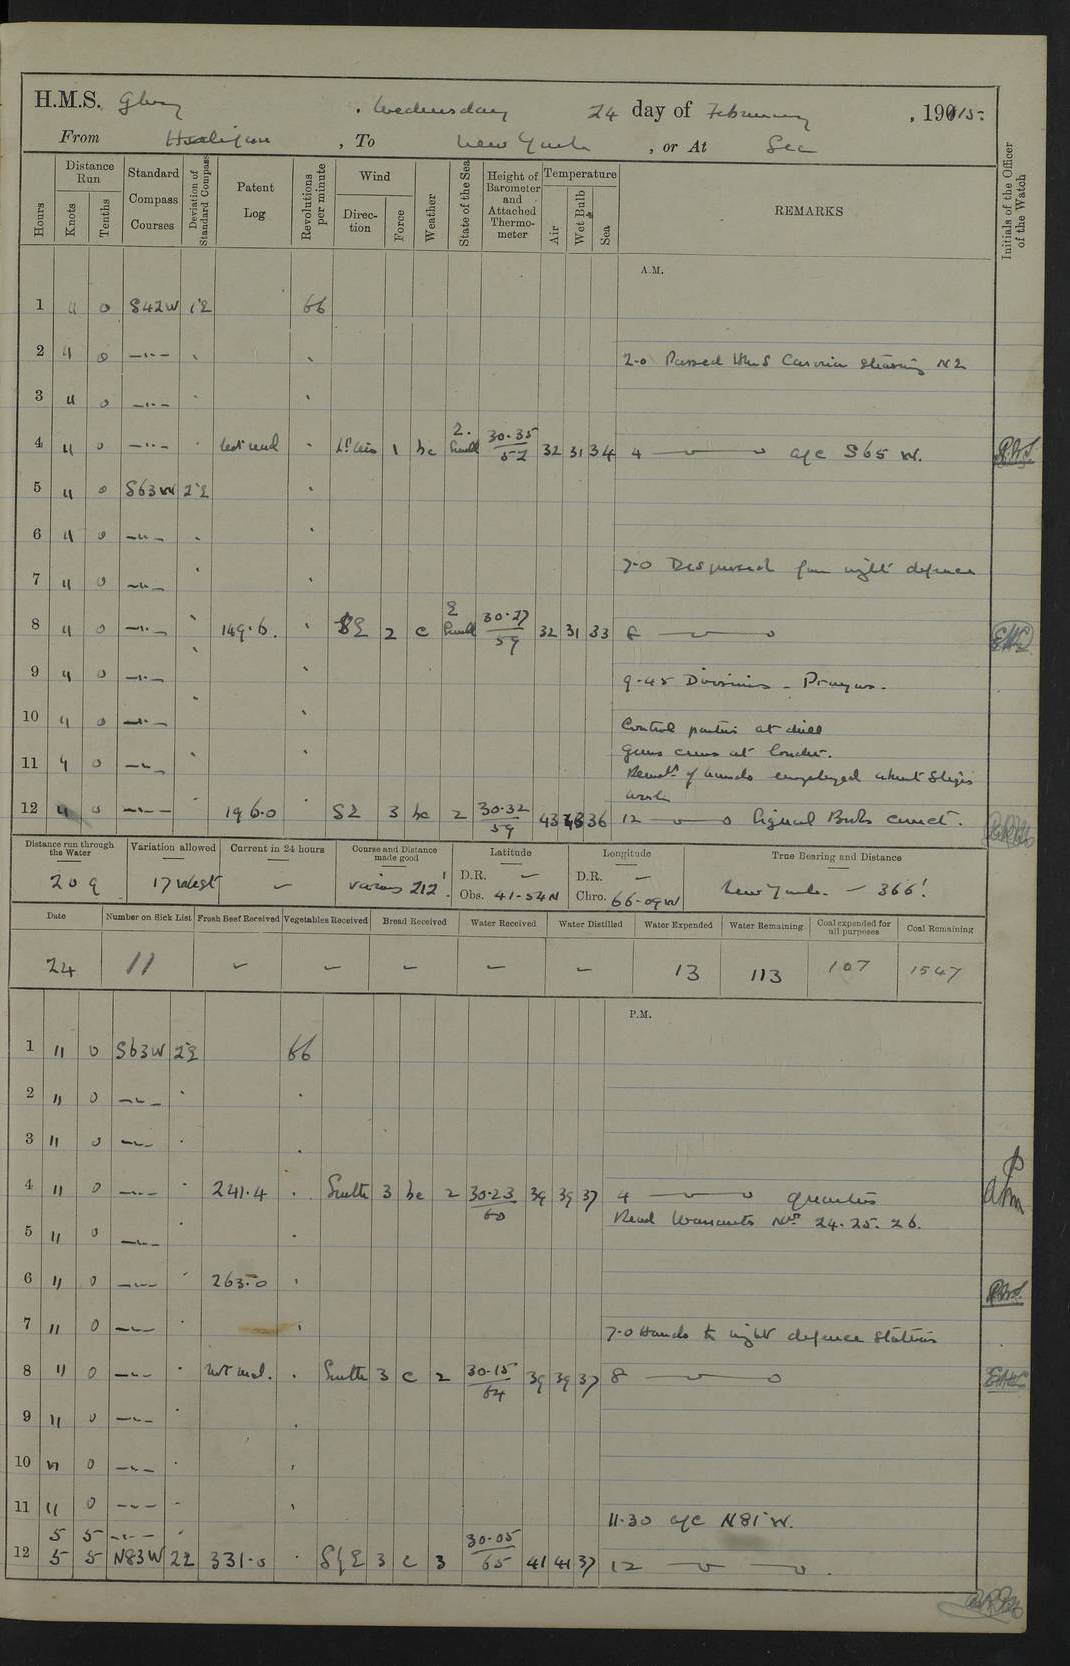 H.M.S. Glory , Wednesday 24 day of February , 1915
From Halifax , To New York , or At Sea
Hours
Distance Run
Knots
Tenths
Standard Compass Courses
Deviation of Standard Compass
Patent Log
Revolutions per minute
Wind
Direction
Force
Weather
State of the Sea
Height of Barometer and Attached Thermometer
Temperature
Air
Wet Bulb
Sea
REMARKS
Initials of the Officer of the Watch
A.M.
1 11 0 S42W 1°E 66
2 11 0 —"— 2-0 Passed HMS Caronia steering NE
3 11 0 —"—
4 11 0 —"— not read Lt airs 1 bc 2. Swell 30.35/57 32 31 34 4 — a/c S65 W.
5 11 0 S63W 2°E
6 11 0 —"—
7 11 0 —"— 7-0 Dispersed from night defence
8 11 0 —"— 149.6. SE 2 c 2 Swell 30.27/59 32 31 33 8 —
9 11 0 —"— 9-45 Divisions - Prayers.
10 11 0 —"— Control parties at drill
Guns crews at loader.
11 11 0 —"— Remdr of hands employed about Ships
work
12 11 0 —"— 196.0 SE 3 bc 2 30.32/59 43 36 12 — Signal Books correct.
Distance run through the Water
Variation allowed
Current in 24 hours
Course and Distance made good
Latitude
Longitude
True Bearing and Distance
209 17 West – various 212' D.R. – Obs. 41-54N D.R. – Chro. 66-09W New York. – 366'
Date
Number on Sick List
Fresh Beef Received
Vegetables Received
Bread Received
Water Received
Water Distilled
Water Expended
Water Remaining
Coal expended for all purposes
Coal Remaining
24 11 – – – – – 13 113 107 1547
P.M.
1 11 0 S63W 2°E 66
2 11 0 —"—
3 11 0 —"—
4 11 0 —"— 241.4 South 3 bc 2 30.23/60 39 39 37 4 — Quarters
Read Warrants Nos 24. 25. 26.
5 11 0 —"—
6 11 0 —"— 263.0
7 11 0 —"— 7-0 Hands to night defence Stations
8 11 0 —"— not read. South 3 c 2 30.15/64 39 39 37 8 —
9 11 0 —"—
10 11 0 —"—
11 11 0 —"— 11-30 a/c N81°W.
5 5 —"—
12 5 5 N83W 2E 331.0 SE 3 c 3 30.05/65 41 41 37 12 —